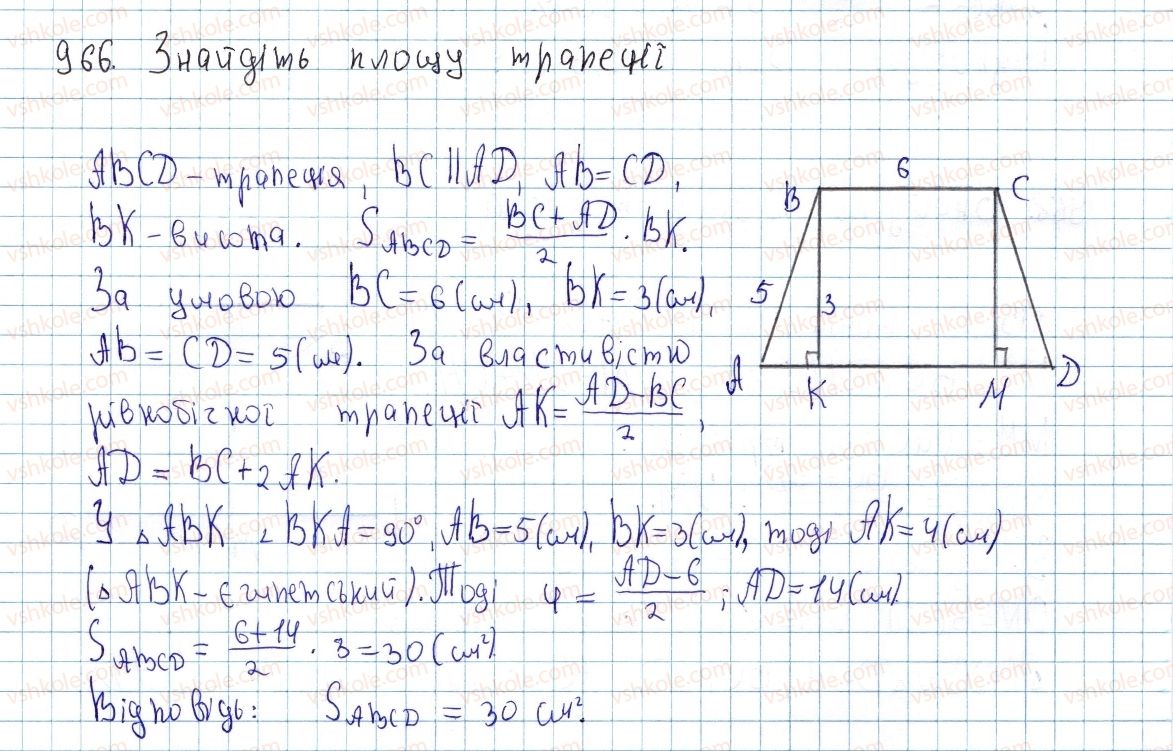 966. Знайдіть площу трапеції
ABCD - трапеція, BC || AD, AB = CD,
BK - висота. S ABCD = (BC + AD)/2 · BK.
За умовою BC = 6 (см), BK = 3 (см),
AB = CD = 5 (см). За властивістю
рівнобічної трапеції AK = (AD - BC)/2,
AD = BC + 2AK.
У △ABK ∠BKA = 90°, AB = 5 (см), BK = 3 (см), тоді AK = 4 (см)
(△ABK - єгипетський). Тоді 4 = (AD - 6)/2; AD = 14 (см)
S ABCD = (6 + 14)/2 · 3 = 30 (см²)
Відповідь: S ABCD = 30 см².
B 6 C
5 3
A K M D
vshkole.com